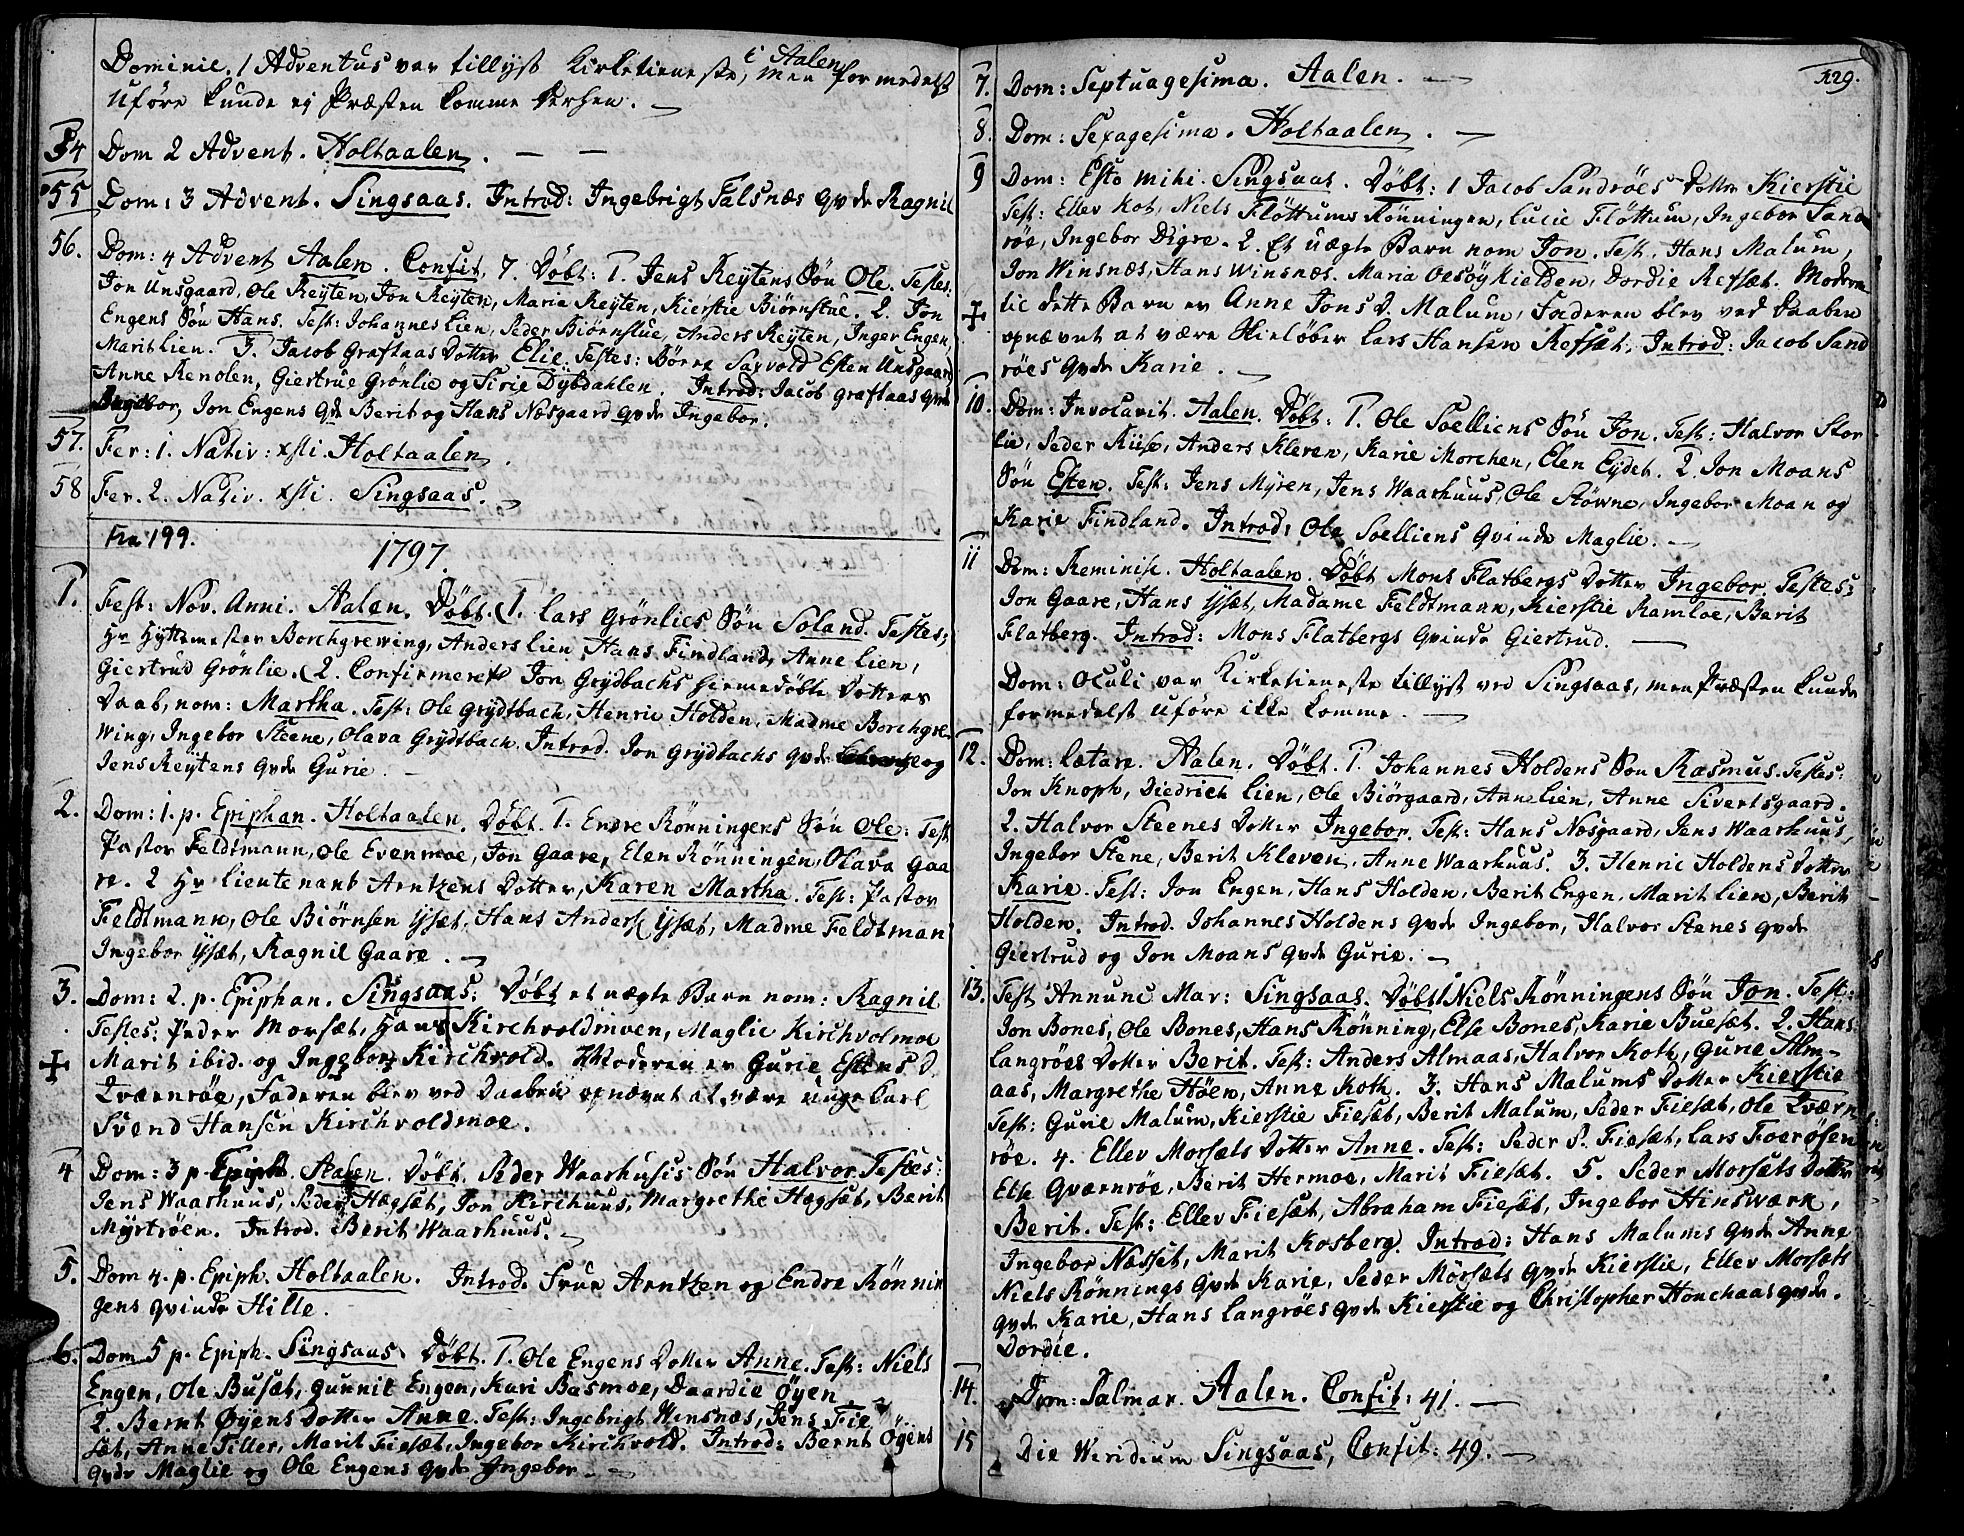 Dominic. 1 Adventus var tillyst Kirketieneste, i Aalen men formedelst
Uføre kunde ej Præsten komme derhen.
54 Dom 2 Advent. Holtaalen.
55 Dom: 3 Advent. Singsaas. Introd: Ingebrigt Talsnæs qvde Ragnil
56. Dom: 4 Advent Aalen. Confit. 7. Døbt: 1. Jens Reytens Søn Ole. Testes:
Jon Unsgaard, Ole Reyten, Jon Reyten, Marie Reyten, Kierstie Biørnstue. 2. Jon
Engens Søn Hans. Test: Johannes Lien, Peder Biørnstue, Anders Reyten, Inger Engen,
Marit Lien. 3. Jacob Graftaas Dotter Elie. Testes: Børre Saxvold Esten Unsgaard
Anne Renolen, Giertrue Grønlie og Sirie Dybdahlen. Introd: Jacob Graftaas qvde
Ingebor, Jon Engens qvde Berit og Hans Næsgaard qvde Ingebor.
57. Fer: 1. Nativ: xsti. Holtaalen.
58 Fer. 2. Nativ. xsti. Singsaas.
Fra 199.
1797.
1. Fest: Nov. Anni. Aalen. Døbt. (1. Lars Grønlies Søn Soland. Testes;
Hr Hyttemester Borchgrewing, Anders Lien, Hans Findland, Anne Lien,
Giertrud Grønlie. (2. Confirmeret Jon Grydbachs hiemedøbte Dotters
Daab, nom: Martha. Test: Ole Grydtbach, Henric Holden, Madme Borchgre-
wing, Ingebor Steene, Olava Grydtbach. Introd. Jon Grydbachs qvde og
Jens Reytens qvde Gurie.
2. Dom: 1. p. Epiphan. Holtaalen. Døbt. 1. Endre Rønningens Søn Ole: Test
Pastor Feldtmann, Ole Evenmoe, Jon Gaare, Elen Rønningen, Olava Gaa
re. 2 Hr Lieutenant Arntzens Dotter, Karen Martha. Test: Pastor
Feldtmann, Ole Biørnsen Ysæt, Hans Anders Ysæt, Madme Feldtman
Ingebor Ysæt, Ragnil Gaare.
3. Dom: 2. p. Epiphan. Singsaas: Døbt et uægte Barn nom: Ragnil
Testes: Peder Morsæt, Hans Kirchvoldmoen, Maglie Kirchvolmoe
Marit ibid. og Ingebor Kirchvold. Moderen er Gurie Estens D.
Qværnrøe, Faderen blev ved Daaben opnævnt at være unge Karl
Svend Hansen Kirchvoldmoe.
4 Dom: 3 p Epiph. Aalen. Døbt. Peder Waarhusis Søn Halvor. Testes:
Jens Waarhuus, Peder Hægsæt, Jon Kirchuus, Margrethe Hægsæt, Berit
Myrtrøen. Introd. Berit Waarhuus.
5. Dom 4. p. Epiph. Holtaalen. Introd. Frue Arntzen og Endre Rønnin
gens qvinde Hille.
6. Dom 5 p. Epiph. Singsaas. Døbt. 1. Ole Engens Dotter Anne. Test: Niels
Engen, Ole Busæt, Gunnil Engen, Kari Basmoe, Daardie Øyen
2. Bernt Øyens Dotter Anne. Test: Ingebrigt Winsnæs, Jens Fie
sæt, Anne Tiller, Marit Fiesæt, Ingebor Kirchvold. Introd: Bernt Øyens
qvde Maglie og Ole Engens qvde Ingebor.
129.
7. Dom: Septuagesima. Aalen.
8. Dom: Sexagesima. Holtaalen.
9 Dom: Esto mihi. Singsaas. Døbt: 1 Jacob Sandrøes Dotter Kierstie
Test: Ellev Kot, Niels Fløttums Rønningen, Lucie Fløttum, Ingebor Sand
røe, Ingebor Digre. 2. Et uægte Barn nom Jon. Test. Hans Malum,
Jon Winsnæs, Hans Winsnæs. Maria Oesøykielden, Dordie Refsæt. Moderen
til dette Barn er Anne Jons D. Malum, Faderen blev ved Daaben
opnævnt at være Skieløber Lars Hansen Refsæt. Introd: Jacob Sand
røes qvde Karie.
10. Dom: Invocavit. Aalen. Døbt: 1. Ole Soelliens Søn Jon. Test: Halvor Stor
lie, Peder Riise, Anders Kleven, Karie Morchen, Elen Eydet. 2. Jon Moans
Søn Esten. Test: Jens Myren, Jens Waarhuus, Ole Støwne, Ingebor Moan og
Karie Findland. Introd: Ole Soelliens Qvinde Maglie.
11 Dom: Reminisc. Holtaalen. Døbt Mons Flatbergs Dotter Ingebor. Testes:
Jon Gaare, Hans Ysæt, Madame Feldtmann, Kierstie Ramloe, Berit
Flatberg. Introd: Mons Flatbergs Qvinde Giertrud.
Dom: Oculi var Kirketieneste tillyst ved Singsaas, men Præsten kunde
formedelst uføre ikke komme.
12. Dom: Lætare. Aalen. Døbt. 1. Johannes Holdens Søn Rasmus. Testes:
Jon Knoph, Diedrich Lien, Ole Biørgaard, Anne Lien, Anne Sivertsgaard.
2. Halvor Steenes Dotter Ingebor. Test: Hans Næsgaard, Jens Waarhuus,
Ingebor Stene, Berit Kleven, Anne Waarhuus. 3. Henric Holdens Dotter
Karie. Test: Jon Engen, Hans Holden, Berit Engen, Marit Lien, Berit
Holden. Introd. Johannes Holdens qvde Ingebor, Halvor Stenes qvde
Giertrud og Jon Moans qvde Gurie.
13. Fest Annunc Mar: Singsaas. Døbt 1 Niels Rønningens Søn Jon. Test:
Jon Bones, Ole Bones, Hans Rønning, Else Bones, Karie Buesæt. 2. Hans
Langrøes Dotter Berit. Test: Anders Almaas, Halvor Koth, Gurie Alm-
aas, Margrethe Høen, Anne Koth. 3. Hans Malums Dotter Kierstie
Test: Gune Malum, Kierstie Fiesæt, Berit Malum, Peder Fiesæt, Ole Qværn
røe. 4. Ellev Morsæts Dotter Anne. Test: Peder P. Fiesæt, Lars Foerøsen
Else Qværnrøe, Berit Hermoe, Marit Fiesæt. 5. Peder Morsæts Dotter
Berit. Test: Ellev Fiesæt, Abraham Fiesæt, Ingebor Hinswærk,
Ingebor Næsset, Marit Kosberg. Introd: Hans Malums qvde Anne
Niels Rønnings qvde Karie, Peder Morsæts qvde Kierstie, Ellev Morsæts
qvde Karie, Hans Langrøes qvde Kierstie og Christopher Honchaas qvde.
Dordie.
14. Dom: Palmar. Aalen. Confit: 41.
15 Die Viridium Singsaas, Confit: 49.